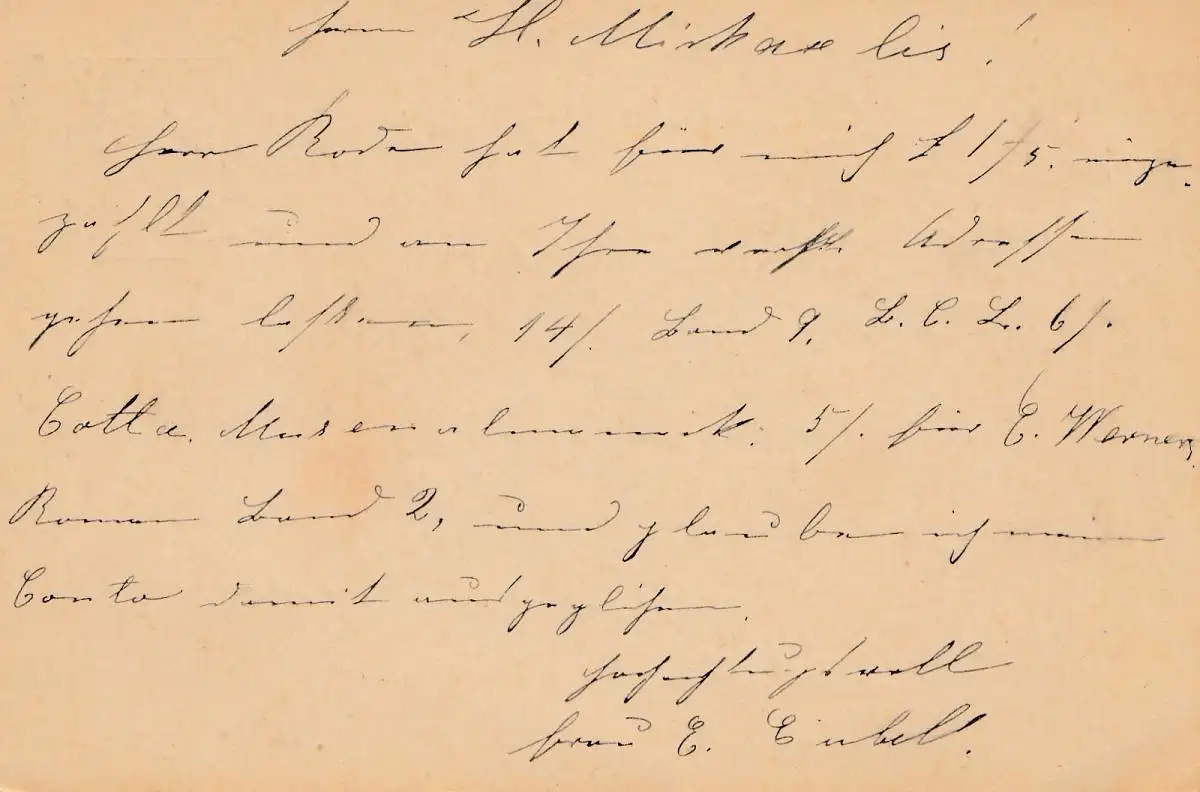 Herrn H. Michaelis!
Herr Rode hat für mich £ 1/5. einge-
zahlt und an Ihre werthe Adresse
gehen lassen, 14/. Band 9. B. C. L. 6/.
Cotta. Musenalmanak. 5/. für E. Werners
Roman Band 2, und glaube ich mein
Conto damit ausgeglichen.
Hochachtungsvoll
Frau E.